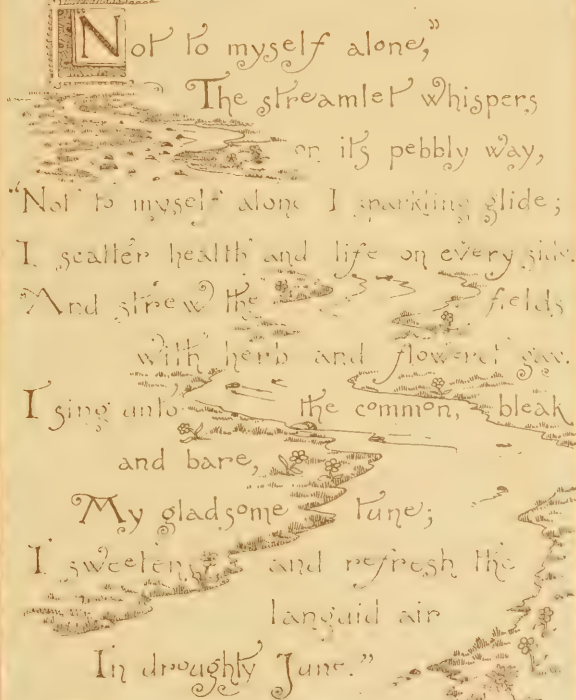 Not to myself alone,"
The streamlet whispers
on its pebbly way,
"Not to myself alone I sparkling glide;
I scatter health and life on every side.
And strew the fields
with herb and flow'ret gay.
I sing unto the common, bleak
and bare,
My gladsome tune;
I sweeten and refresh the
languid air
In droughty June."